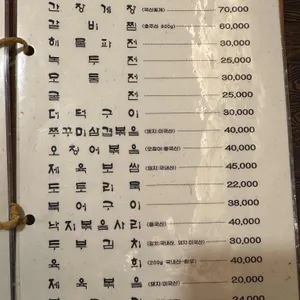 간장게장 (국산꽃게) 70,000
갈비찜 (호주산 800g) 60,000
해물파전 30,000
녹두전 25,000
모둠전 30,000
굴전 25,000
더덕구이 30,000
쭈꾸미삼겹볶음 (돼지:미국산) 40,000
오징어볶음 (오징어:중국산) 40,000
제육보쌈 (돼지:국내산) 45,000
도토리묵 22,000
북어구이 38,000
낙지볶음사리 (중국산) 40,000
두부김치 (김치:국내산, 돼지:미국산) 30,000
육회 (200g 국내산-한우) 40,000
제육볶음 (돼지:미국산) 20,000
24,000